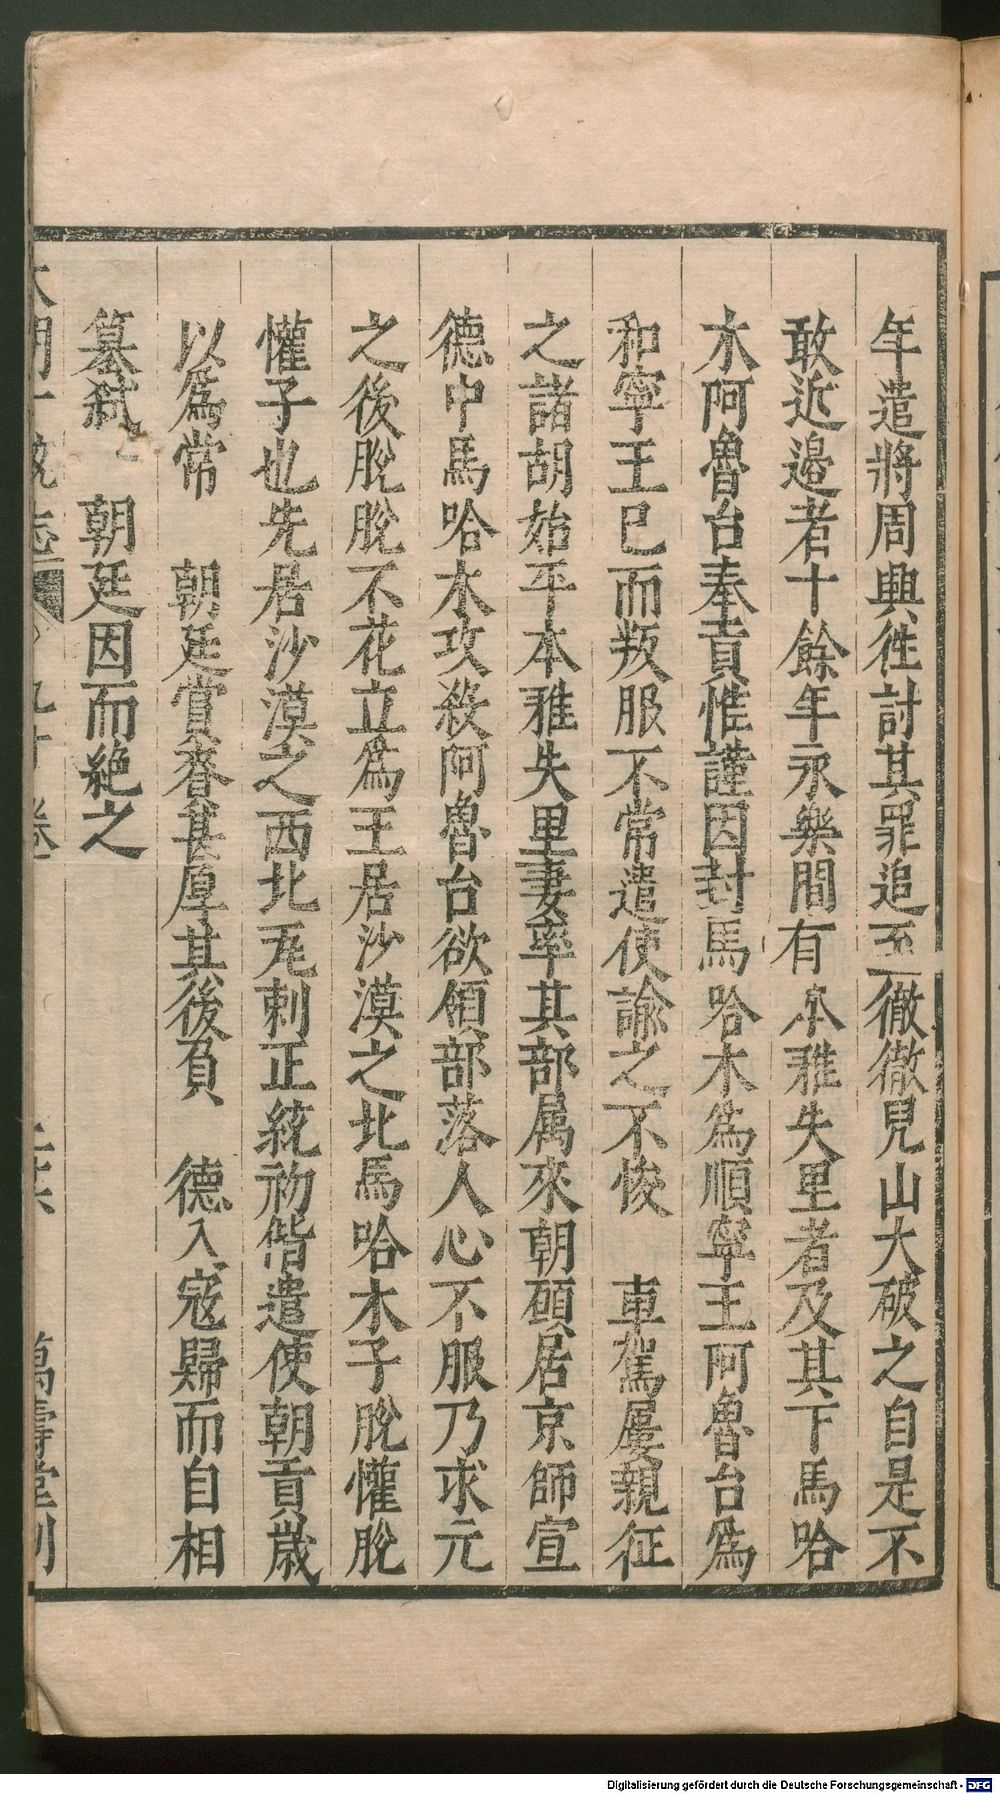 年遣將周興徃討其罪追至徹徹見山大破之自是不
敢近邉者十餘年永樂間有本雅失里者及其下馬哈
木阿魯台奉貢惟謹因封馬哈木爲順寧王阿魯台爲
和寧王已而叛服不常遣使諭之不悛　車駕屢親征
之諸胡始平本雅失里妻率其部属來朝碩居京師宣
德中馬哈木攻殺阿魯台欲領部落人心不服乃求元
之後脫脫不花立爲王居沙漠之北馬哈木子脫懽脫
懽子也先居沙漠之西北瓦剌正統初偕遣使朝貢歲
以爲常　朝廷賞賚甚厚其後負　德入寇歸而自相
簒弑　朝廷因而絶之
大明一統志　九十卷　萬壽堂刊
Digitalisierung gefördert durch die Deutsche Forschungsgemeinschaft - DFG